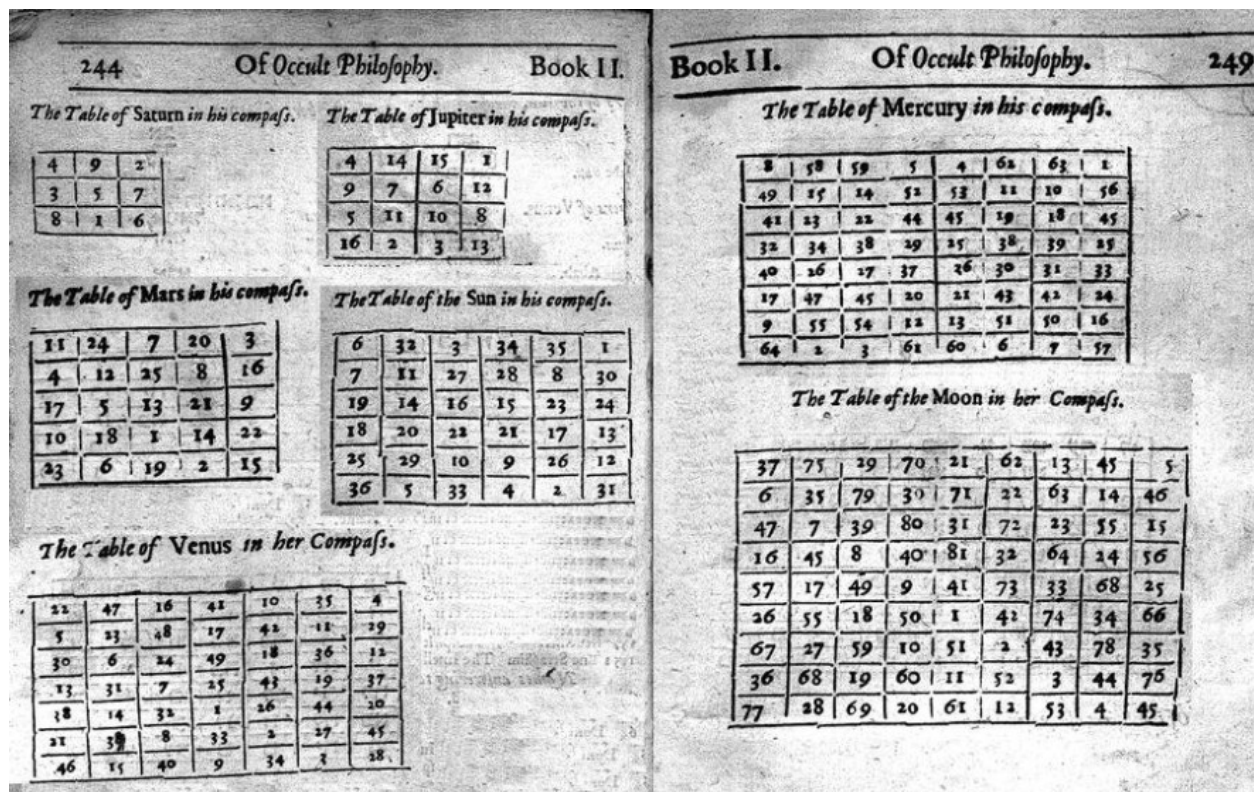 244 Of Occult Philoſophy. Book II.
The Table of Saturn in his compaſs.
4 9 2
3 5 7
8 1 6
The Table of Jupiter in his compaſs.
4 14 15 1
9 7 6 12
5 11 10 8
16 2 3 13
The Table of Mars in his compaſs.
11 24 7 20 3
4 12 25 8 16
17 5 13 21 9
10 18 1 14 22
23 6 19 2 15
The Table of the Sun in his compaſs.
6 32 3 34 35 1
7 11 27 28 8 30
19 14 16 15 23 24
18 20 22 21 17 13
25 29 10 9 26 12
36 5 33 4 2 31
The Table of Venus in her Compaſs.
22 47 16 41 10 35 4
5 23 48 17 42 11 29
30 6 24 49 18 36 12
13 31 7 25 43 19 37
38 14 32 1 26 44 20
21 8 33 2 27 45
46 15 40 9 34 3 28
Book II. Of Occult Philoſophy. 249
The Table of Mercury in his compaſs.
8 58 59 5 4 62 63 1
49 15 14 52 53 11 10 56
41 23 22 44 45 19 18 45
32 34 38 29 25 38 39 25
40 26 27 37 36 30 31 33
17 47 45 20 21 43 42 24
9 55 54 12 13 51 50 16
64 2 3 61 60 6 7 57
The Table of the Moon in her Compaſs.
37 75 29 70 21 62 13 45 5
6 35 79 30 71 22 63 14 46
47 7 39 80 31 72 23 55 15
16 45 8 40 81 32 64 24 56
57 17 49 9 41 73 33 68 25
26 55 18 50 1 42 74 34 66
67 27 59 10 51 2 43 78 35
36 68 19 60 11 52 3 44 76
77 28 69 20 61 12 53 4 45